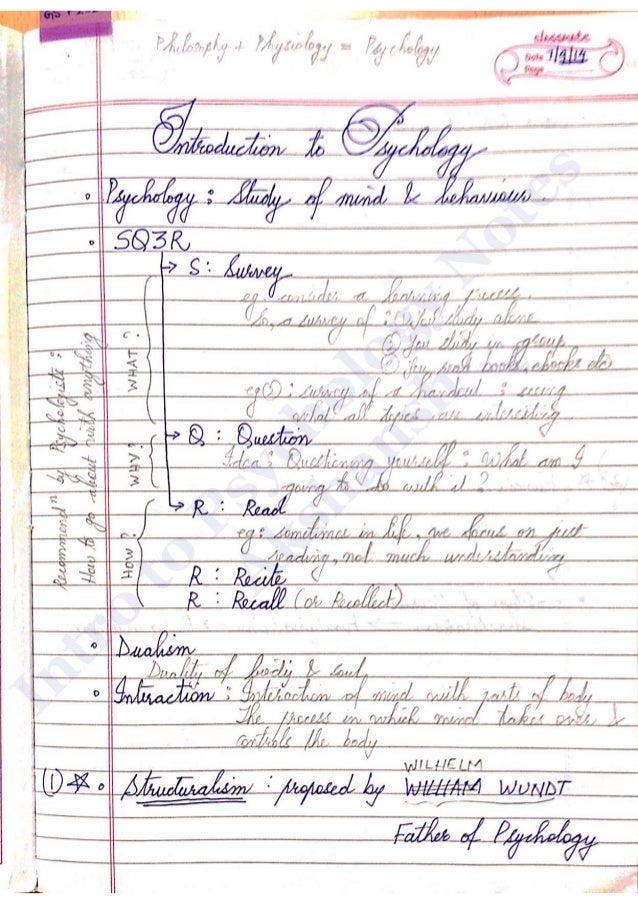 Philosophy + Physiology = Psychology
classmate
Date 7/9/19
Page
Introduction to Psychology
• Psychology : Study of mind & behaviour.
• SQ3R
→ S : Survey
eg. consider a learning process.
So, a survey of : ① You study alone
② You study in group
③ You read books, ebooks etc
eg② : survey of a handout : seeing
what all topics are interesting
→ Q : Question
Idea : Questioning yourself : What am I
going to do with it ?
→ R : Read
eg : sometimes in life, we focus on just
reading, not much understanding
R : Recite
R : Recall (or Recollect)
WHAT ?
WHY ?
HOW ?
Recommendⁿ by Psychologists :
How to go about with anything
• Dualism
Duality of body & soul
• Interaction : Interaction of mind with parts of body
The process in which mind takes over &
controls the body
WILHELM
(1) ☆ • Structuralism : proposed by WILLIAM WUNDT
Father of Psychology
Intro to Psychology Notes